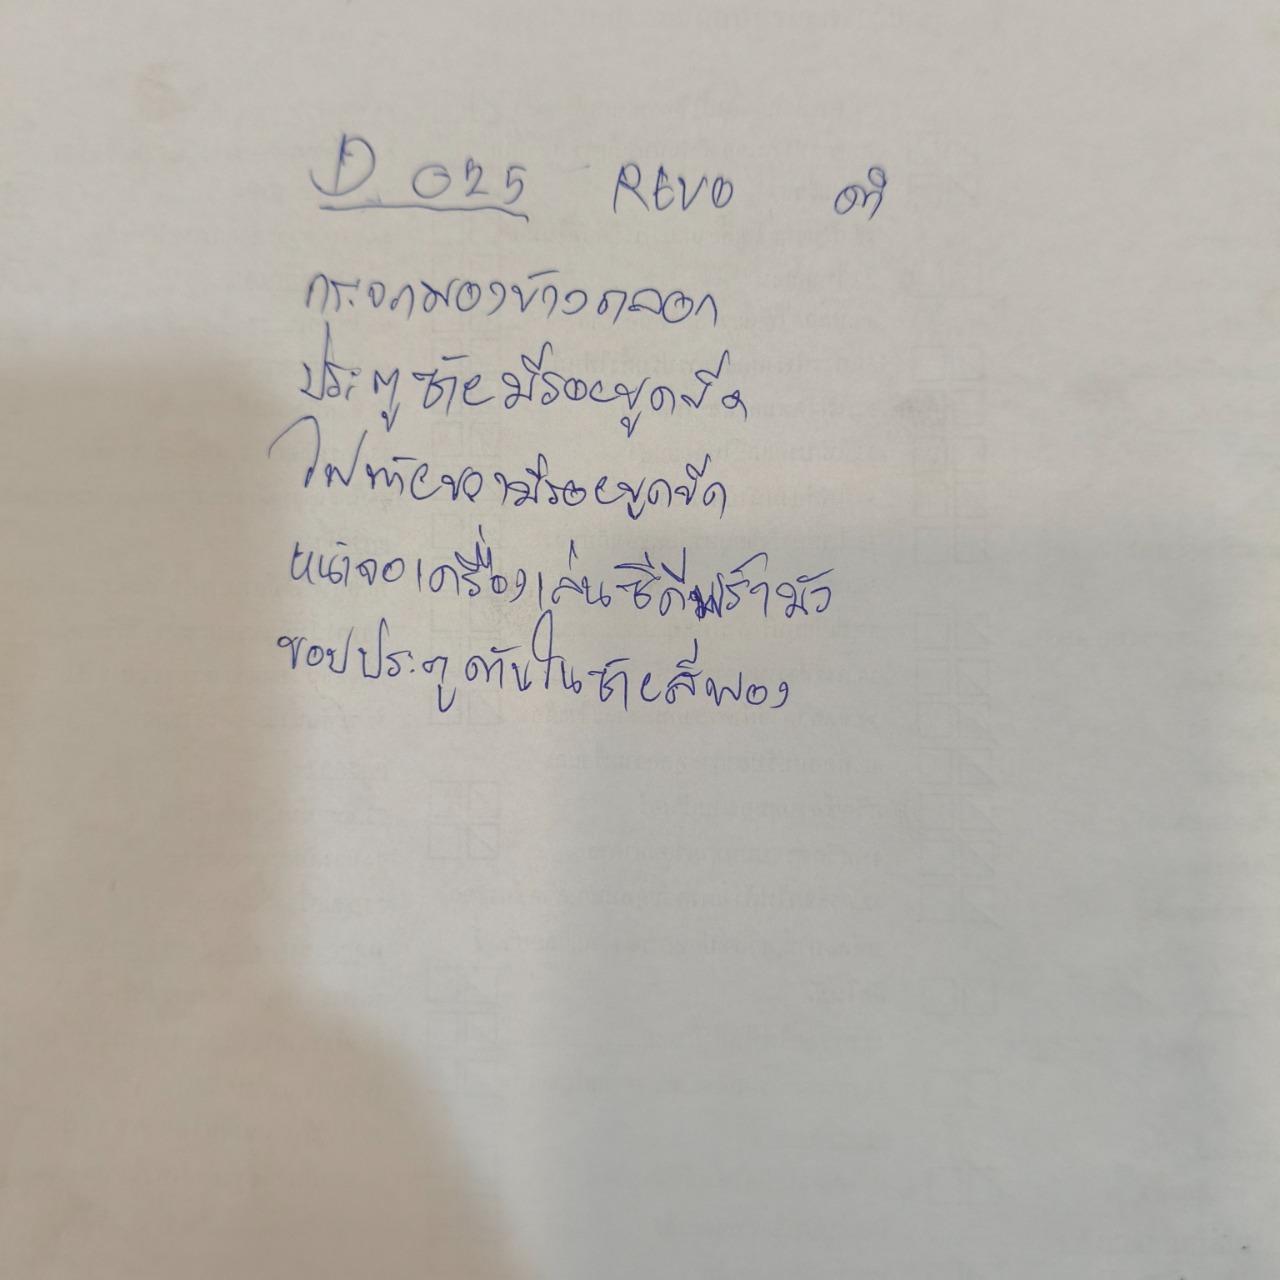 D 025 REVO ดำ
กระจกมองข้างถลอก
ประตูซ้ายมีรอยขูดขีด
ไฟท้ายขวามีรอยขูดขีด
หน้าจอเครื่องเล่นซีดีพร่ามัว
ขอบประตูด้านในซ้ายสีพอง